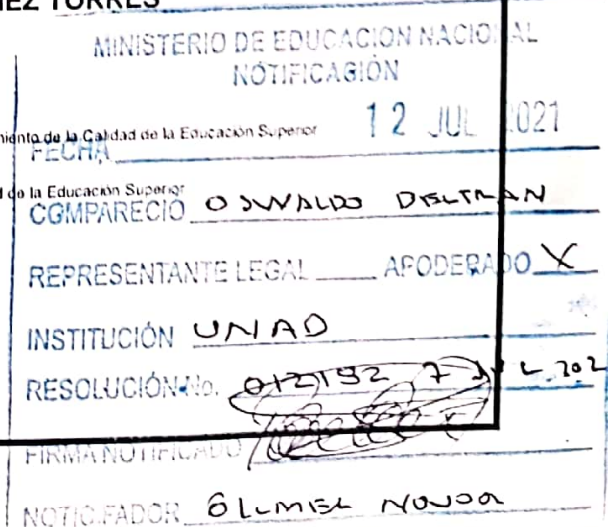 TORRES
MINISTERIO DE EDUCACION NACIONAL
NOTIFICACIÓN
de la Calidad de la Educación Superior
12 JUL 2021
FECHA
de la Educación Superior
COMPARECIÓ OSWALDO BELTRAN
REPRESENTANTE LEGAL APODERADO X
INSTITUCIÓN UNAD
RESOLUCIÓN No. 012192 7 JUL 202
FIRMA NOTIFICADO
NOTIFICADOR